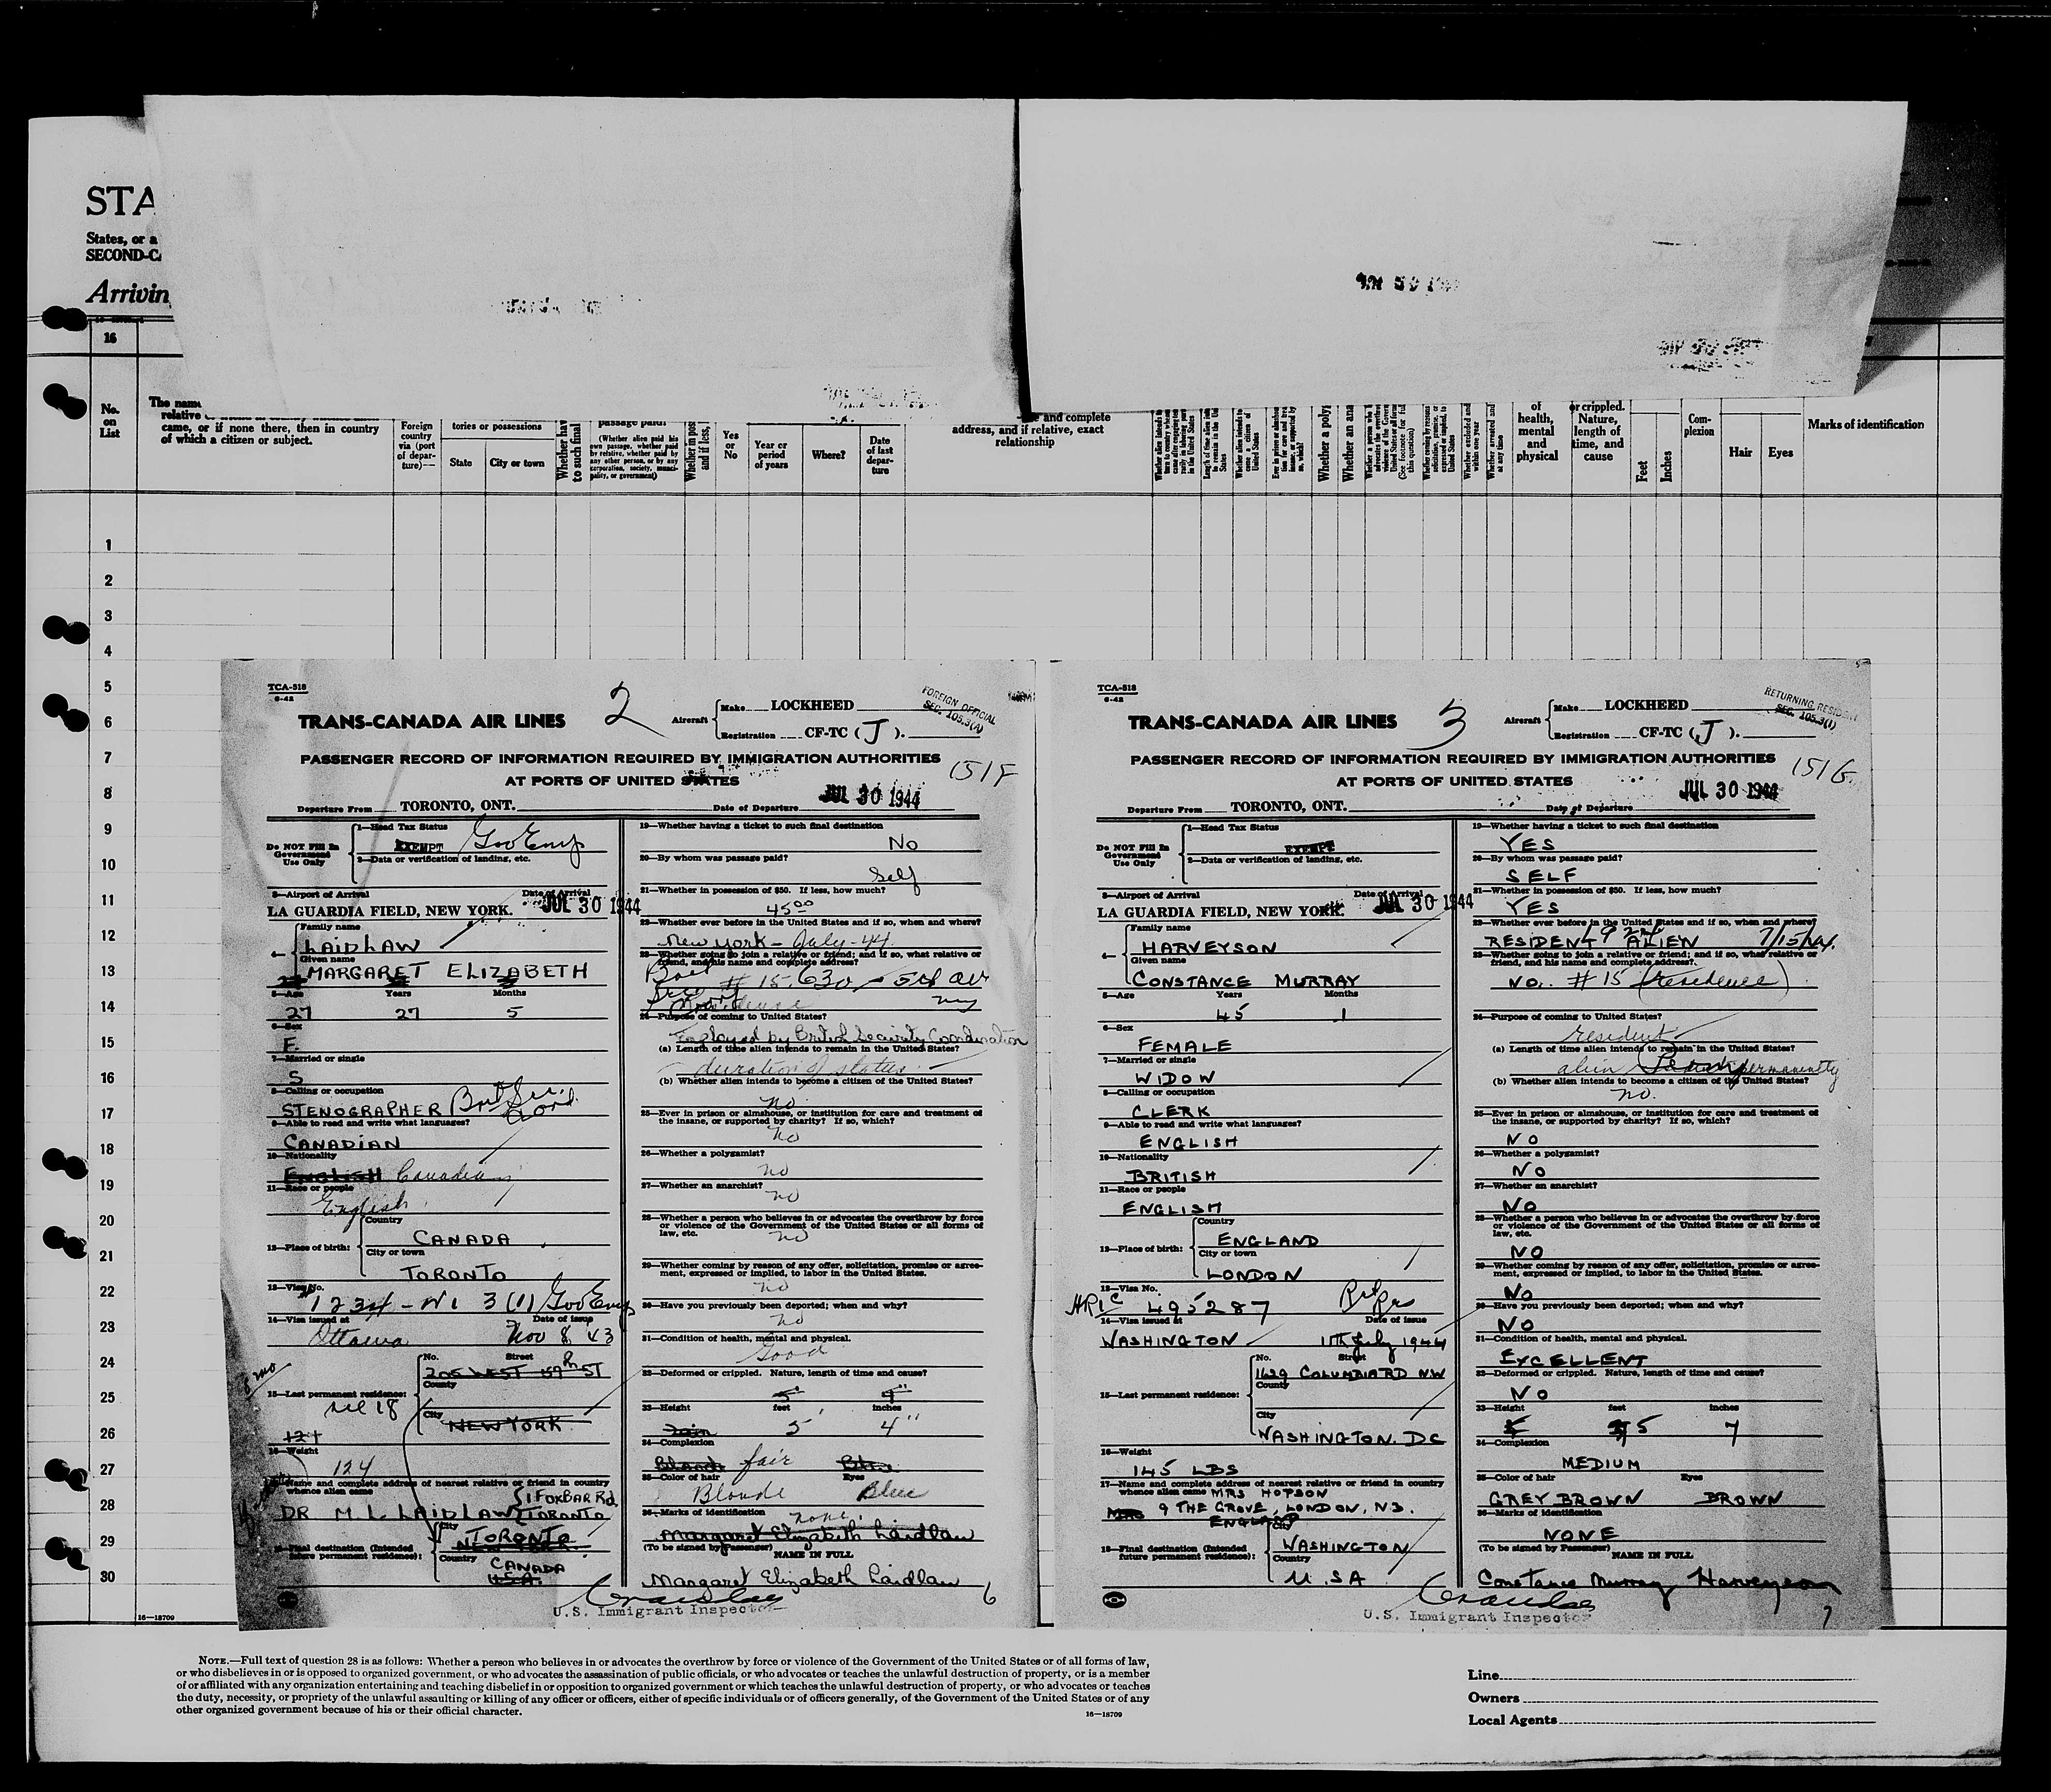 STA
States, or a
SECOND-CA
Arrivin
16
No. on List
The name
relative
came, or if none there, then in country
of which a citizen or subject.
Foreign country via (port of departure)—
tories or possessions
State
City or town
passage paid?
(Whether alien paid his own passage, whether paid by relative, whether paid by any other person, or by any corporation, society, municipality, or government)
Yes or No
Year or period of years
Where?
Date of last departure
and complete
address, and if relative, exact
relationship
Whether a polyg
Whether an ana
of health, mental and physical
or crippled. Nature, length of time, and cause
Feet
Inches
Complexion
Hair
Eyes
Marks of identification
1
2
3
4
5
6
7
8
9
10
11
12
13
14
15
16
17
18
19
20
21
22
23
24
25
26
27
28
29
30
16—18709
TCA-518
6-42
2
TRANS-CANADA AIR LINES
Aircraft
Make LOCKHEED
Registration CF-TC ( J ).
FOREIGN OFFICIAL
SEC. 105.3(A)
PASSENGER RECORD OF INFORMATION REQUIRED BY IMMIGRATION AUTHORITIES
AT PORTS OF UNITED STATES
151F
Departure From TORONTO, ONT. Date of Departure JUL 30 1944
Do NOT Fill In Government Use Only
1—Head Tax Status
EXEMPT Gov Emp
2—Data or verification of landing, etc.
3—Airport of Arrival Date of Arrival
LA GUARDIA FIELD, NEW YORK. JUL 30 1944
4— Family name
LAIDLAW
Given name
MARGARET ELIZABETH
5—Age Years Months
27 27 5
6—Sex
F.
7—Married or single
S
8—Calling or occupation
STENOGRAPHER Brit Sec. Coord.
9—Able to read and write what languages?
CANADIAN
10—Nationality
ENGLISH Canadian
11—Race or people
English
12—Place of birth:
Country
CANADA
City or town
TORONTO
13—Visa No.
3 (1) Gov Emp
14—Visa issued at Date of issue
Ottawa Nov 8 43
15—Last permanent residence:
No. Street
205 WEST 59th ST
County
City
NEW YORK
124
16—Weight
124
17—Name and complete address of nearest relative or friend in country whence alien came
DR M L LAIDLAW 1 FOXBAR Rd TORONTO
18—Final destination (Intended future permanent residence):
City
TORONTO
NEW YORK
Country
CANADA
U.S.A.
19—Whether having a ticket to such final destination
No
20—By whom was passage paid?
Self
21—Whether in possession of $50. If less, how much?
45.00
22—Whether ever before in the United States and if so, when and where?
New York - July - 44
23—Whether going to join a relative or friend; and if so, what relative or friend, and his name and complete address?
# 15. 630 - 5th av
ny
24—Purpose of coming to United States?
Employed by British Security Coordination
(a) Length of time alien intends to remain in the United States?
duration of status
(b) Whether alien intends to become a citizen of the United States?
no
25—Ever in prison or almshouse, or institution for care and treatment of the insane, or supported by charity? If so, which?
no
26—Whether a polygamist?
no
27—Whether an anarchist?
no
28—Whether a person who believes in or advocates the overthrow by force or violence of the Government of the United States or all forms of law, etc.
no
29—Whether coming by reason of any offer, solicitation, promise or agreement, expressed or implied, to labor in the United States.
no
30—Have you previously been deported; when and why?
no
31—Condition of health, mental and physical.
Good
32—Deformed or crippled. Nature, length of time and cause?
5' 4"
33—Height feet inches
5' 4"
34—Complexion
Blonde fair Blue
35—Color of hair Eyes
Blonde Blue
36—Marks of identification
none.
Margaret Elizabeth Laidlaw
(To be signed by Passenger)
NAME IN FULL
Margaret Elizabeth Laidlaw
6
U.S. Immigrant Inspector
TCA-518
6-42
3
TRANS-CANADA AIR LINES
Aircraft
Make LOCKHEED
Registration CF-TC ( J ).
RETURNING RESIDENT
SEC. 105.3(1)
PASSENGER RECORD OF INFORMATION REQUIRED BY IMMIGRATION AUTHORITIES
AT PORTS OF UNITED STATES
151G
Departure From TORONTO, ONT. Date of Departure JUL 30 1944
Do NOT Fill In Government Use Only
1—Head Tax Status
EXEMPT
2—Data or verification of landing, etc.
3—Airport of Arrival Date of Arrival
LA GUARDIA FIELD, NEW YORK. JUL 30 1944
4— Family name
HARVEYSON
Given name
CONSTANCE MURRAY
5—Age Years Months
45 1
6—Sex
FEMALE
7—Married or single
WIDOW
8—Calling or occupation
CLERK
9—Able to read and write what languages?
ENGLISH
10—Nationality
BRITISH
11—Race or people
ENGLISH
12—Place of birth:
Country
ENGLAND
City or town
LONDON
13—Visa No.
495287
14—Visa issued at Date of issue
WASHINGTON 11th July 1944
15—Last permanent residence:
No. Street
1629 COLUMBIA RD NW
County
City
WASHINGTON. DC
16—Weight
145 LBS
17—Name and complete address of nearest relative or friend in country whence alien came MRS HOPSON
MRS 9 THE GROVE, LONDON, N3.
ENGLAND
18—Final destination (Intended future permanent residence):
City
WASHINGTON
Country
U.S.A
19—Whether having a ticket to such final destination
YES
20—By whom was passage paid?
SELF
21—Whether in possession of $50. If less, how much?
YES
22—Whether ever before in the United States and if so, when and where?
RESIDENT ALIEN
23—Whether going to join a relative or friend; and if so, what relative or friend, and his name and complete address?
NO. # 15 (residence)
24—Purpose of coming to United States?
resident
(a) Length of time alien intends to remain in the United States?
alien permanently
(b) Whether alien intends to become a citizen of the United States?
no.
25—Ever in prison or almshouse, or institution for care and treatment of the insane, or supported by charity? If so, which?
NO
26—Whether a polygamist?
NO
27—Whether an anarchist?
NO
28—Whether a person who believes in or advocates the overthrow by force or violence of the Government of the United States or all forms of law, etc.
NO
29—Whether coming by reason of any offer, solicitation, promise or agreement, expressed or implied, to labor in the United States.
NO
30—Have you previously been deported; when and why?
NO
31—Condition of health, mental and physical.
EXCELLENT
32—Deformed or crippled. Nature, length of time and cause?
NO
33—Height feet inches
5 7
34—Complexion
MEDIUM
35—Color of hair Eyes
GREY BROWN BROWN
36—Marks of identification
NONE
(To be signed by Passenger)
NAME IN FULL
Constance Murray Harveyson
7
U.S. Immigrant Inspector
NOTE.—Full text of question 28 is as follows: Whether a person who believes in or advocates the overthrow by force or violence of the Government of the United States or of all forms of law,
or who disbelieves in or is opposed to organized government, or who advocates the assassination of public officials, or who advocates or teaches the unlawful destruction of property, or is a member
of or affiliated with any organization entertaining and teaching disbelief in or opposition to organized government or which teaches the unlawful destruction of property, or who advocates or teaches
the duty, necessity, or propriety of the unlawful assaulting or killing of any officer or officers, either of specific individuals or of officers generally, of the Government of the United States or of any
other organized government because of his or their official character.
16—18709
Line
Owners
Local Agents